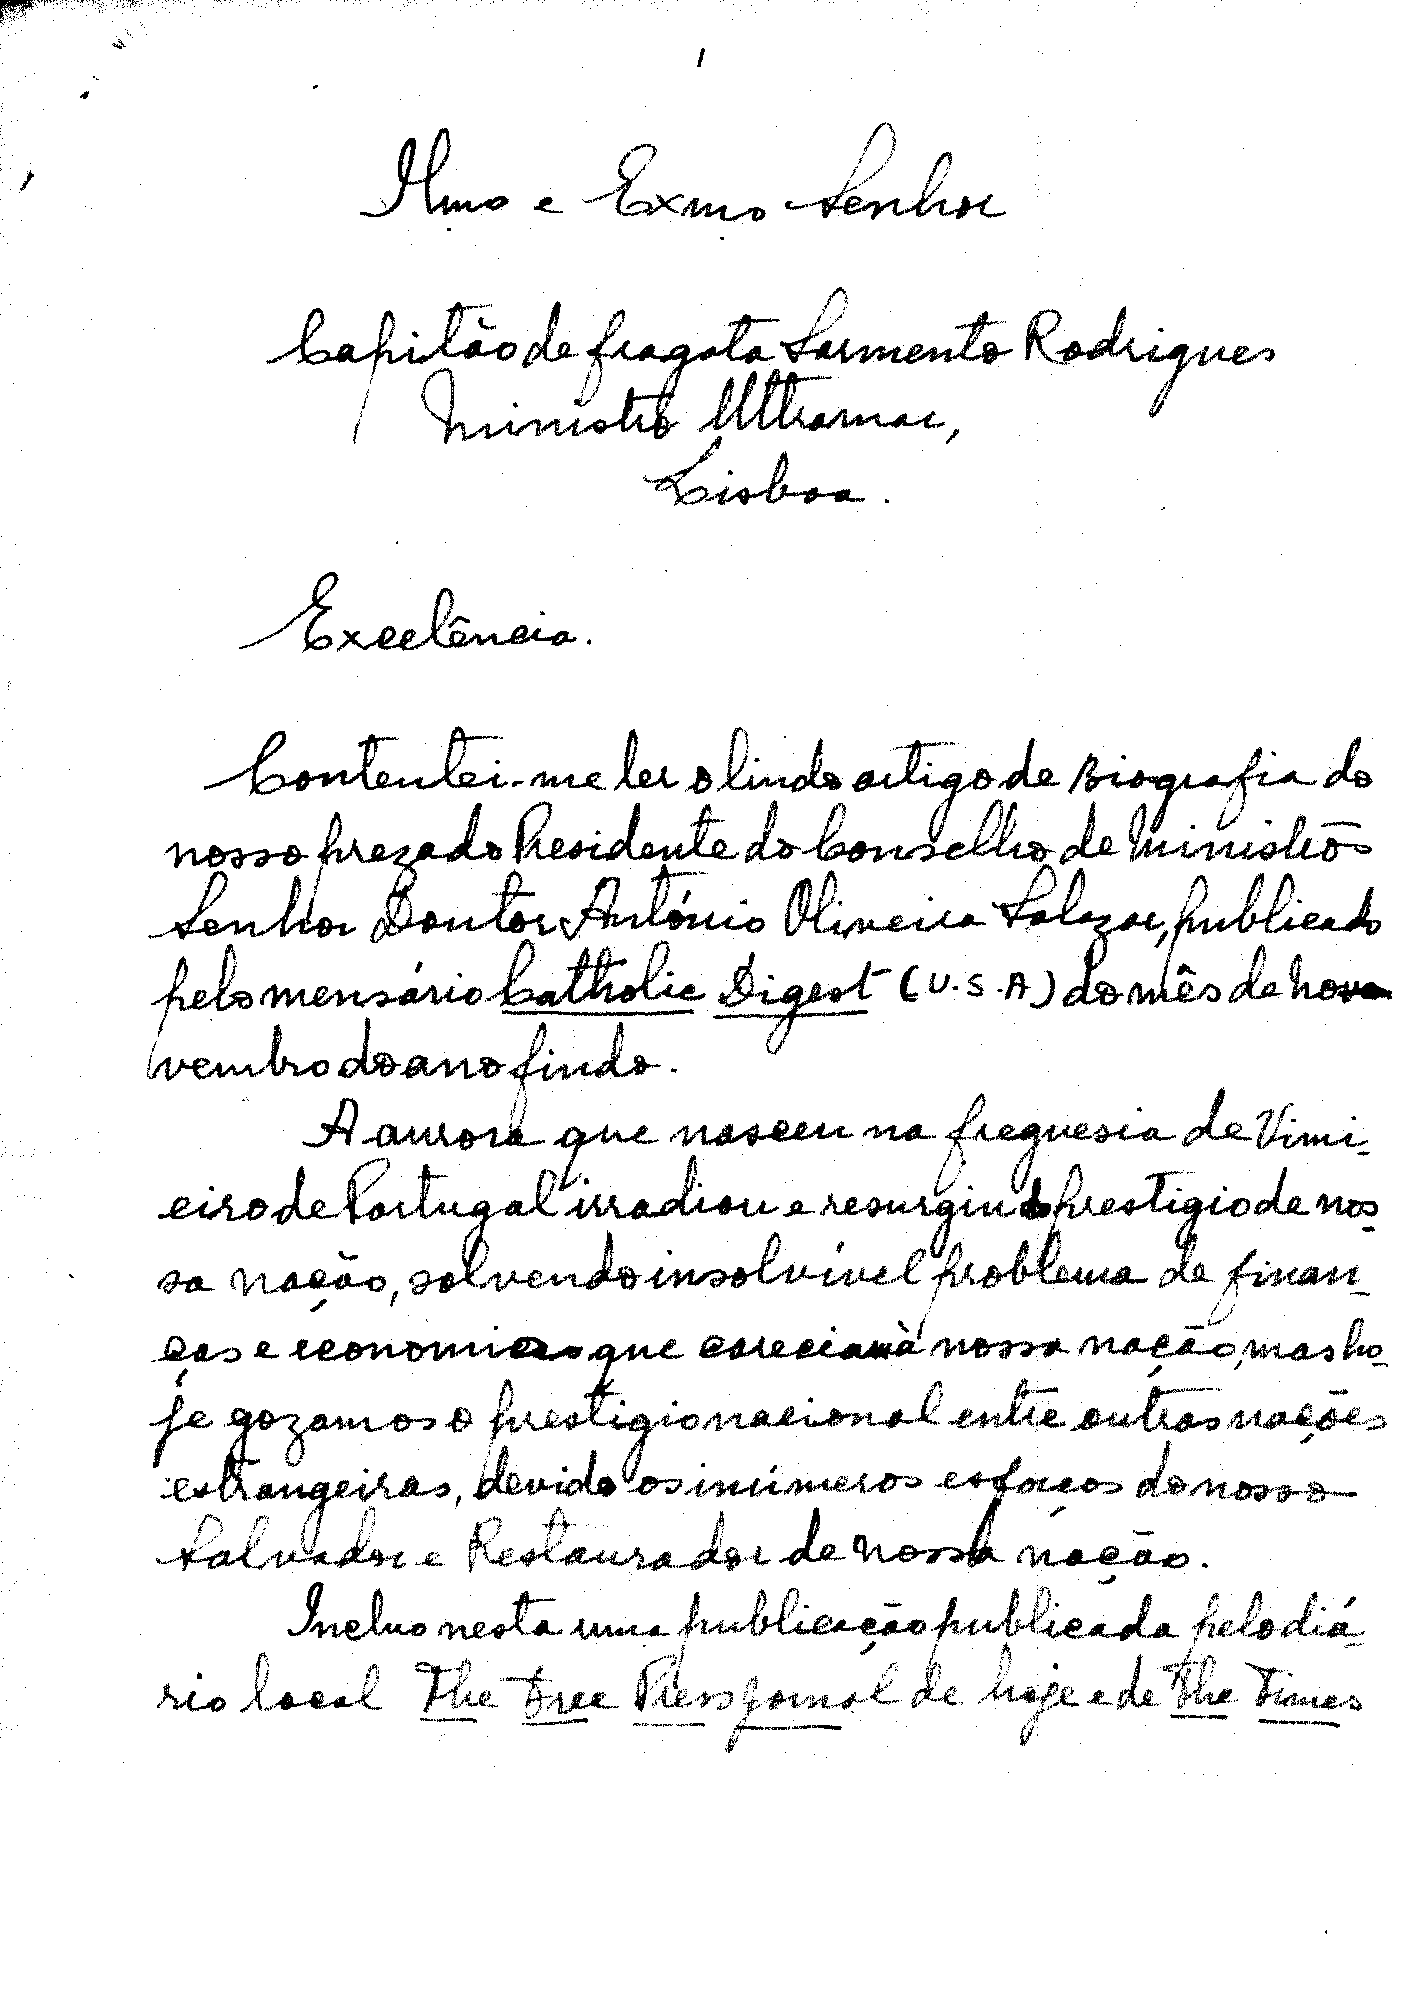 1
Ilmo e Exmo Senhor
Capitão de fragata Sarmento Rodrigues
Ministro Ultramar,
Lisboa.
Excelência.
Contentei-me ler o lindo artigo de Biografia do
nosso prezado Presidente do Conselho de Ministros
Senhor Doutor António Oliveira Salazar, publicado
pelo mensário Catholic Digest (U.S.A) do mês de no
vembro do ano findo.
A aurora que nasceu na freguesia de Vimi-
eiro de Portugal irradiou e resurgiu o prestigio de nos-
sa nação, solvendo insolvível problema de finan-
ças e economicas que careciam à nossa nação, mas ho-
je gozamos o prestigio nacional entre outras nações
estrangeiras, devido os inúmeros esforços do nosso
Salvador e Restaurador de nossa nação.
Incluo nesta uma publicação publicada pelo diá-
rio local The Free Press Jornal de hoje e de The Times